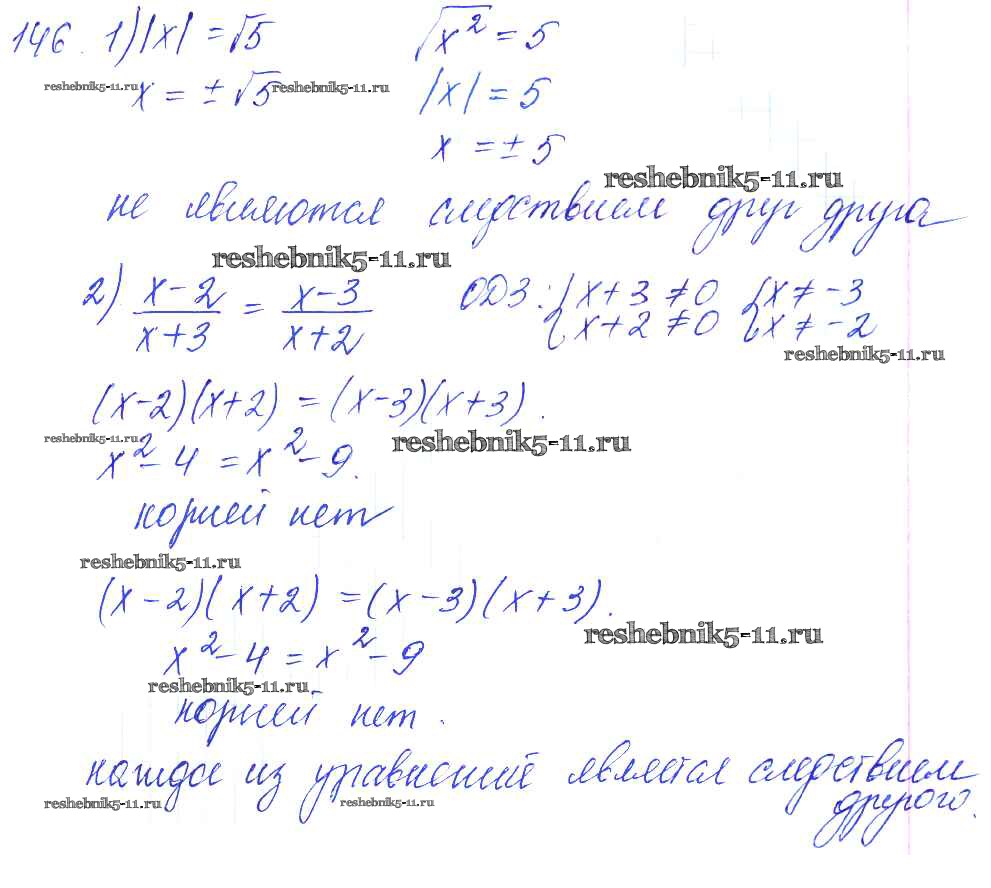 146. 1) |x| = √5 √x² = 5
reshebnik5-11.ru x = ± √5 reshebnik5-11.ru |x| = 5
x = ± 5
reshebnik5-11.ru
не являются следствием друг друга
reshebnik5-11.ru
2) (x-2)/(x+3) = (x-3)/(x+2) ОДЗ: { x+3 ≠ 0 { x ≠ -3
{ x+2 ≠ 0 { x ≠ -2
reshebnik5-11.ru
(x-2)(x+2) = (x-3)(x+3).
reshebnik5-11.ru reshebnik5-11.ru
x² - 4 = x² - 9.
корней нет
reshebnik5-11.ru
(x-2)(x+2) = (x-3)(x+3).
reshebnik5-11.ru
x² - 4 = x² - 9
reshebnik5-11.ru
корней нет.
каждое из уравнений является следствием
reshebnik5-11.ru reshebnik5-11.ru
другого.